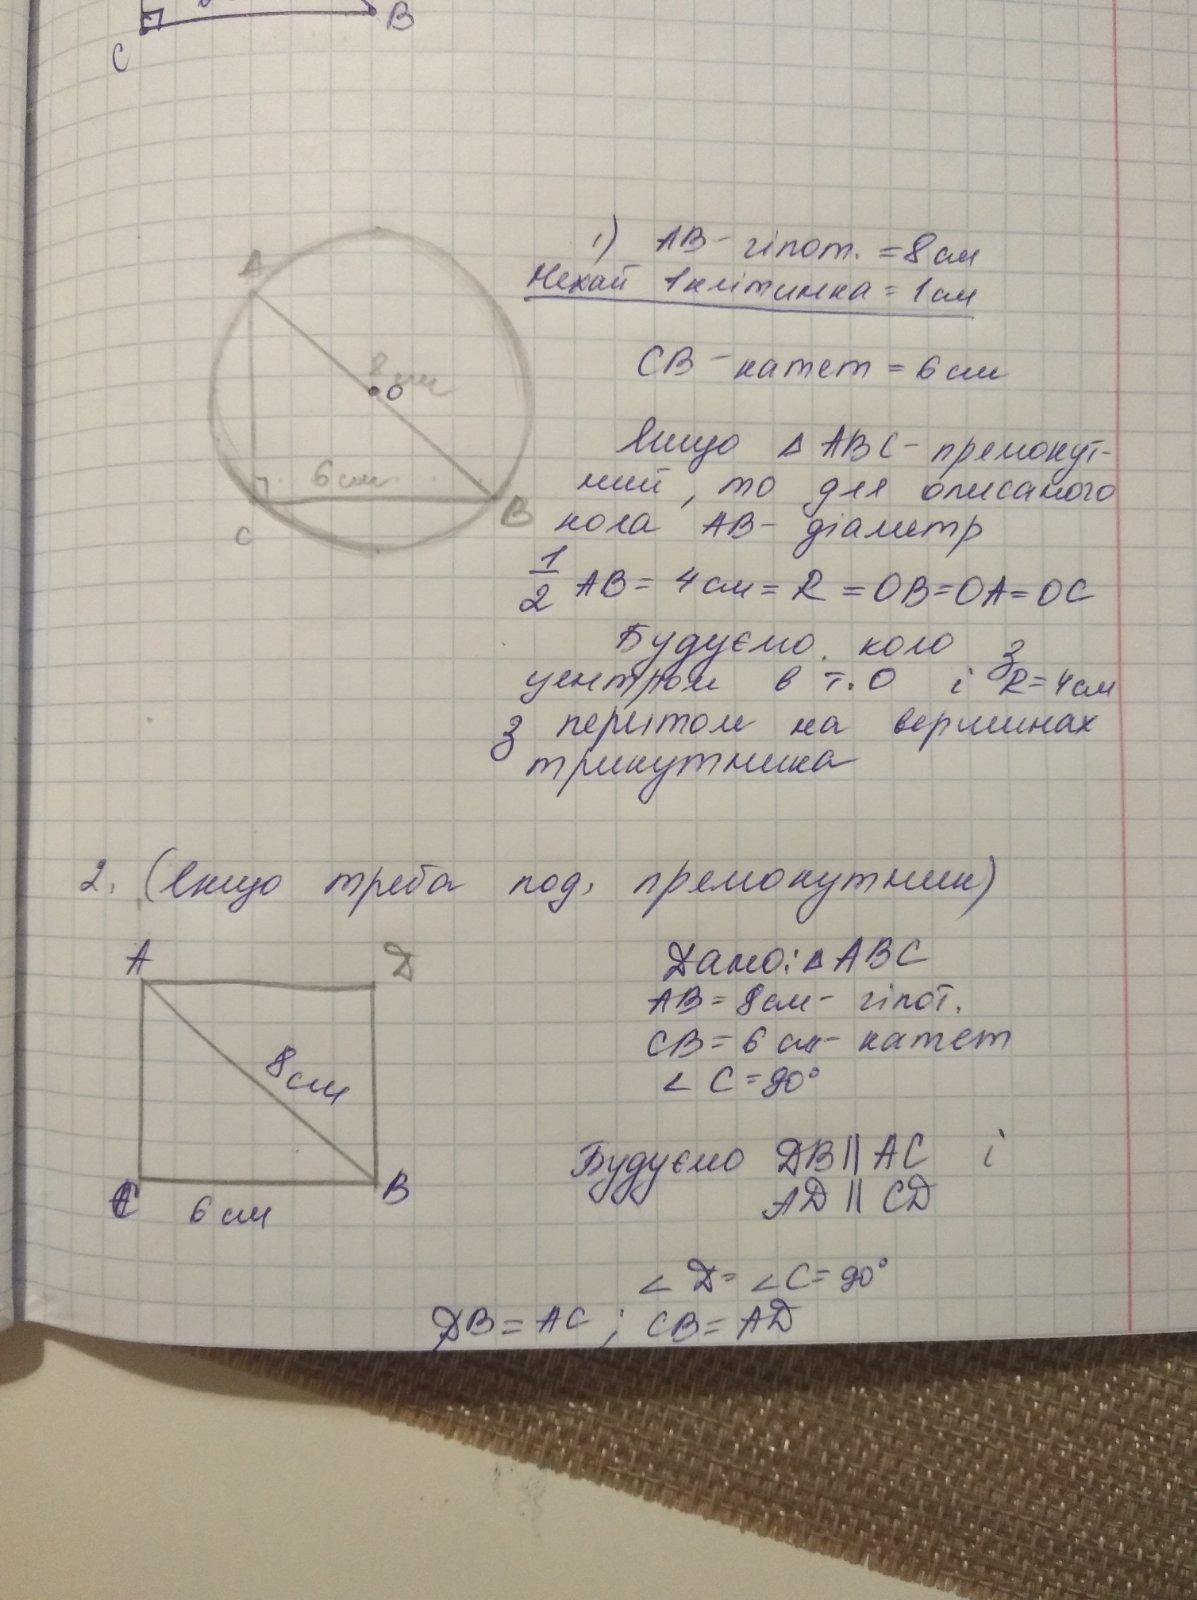 C
B
1) AB - гіпот. = 8 см
Нехай 1 клітинка = 1 см
CB - катет = 6 см
Якщо △ ABC - прямокут-
ний, то для описаного
кола AB - діаметр
1/2 AB = 4 см = R = OB = OA = OC
Будуємо коло з
центром в т. O і R = 4 см
з перетом на вершинах
трикутника
A
8 см
O
6 см
C
B
2. (якщо треба под, прямокутник)
A
D
8 см
C
B
6 см
Дано: △ ABC
AB = 8 см - гіпот.
CB = 6 см - катет
∠ C = 90°
Будуємо DB || AC і
AD || CD
∠ D = ∠ C = 90°
DB = AC ; CB = AD